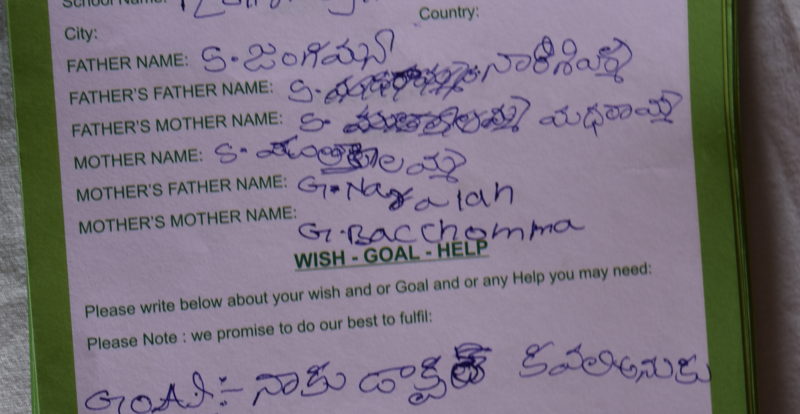 School Name:
Country:
City:
FATHER NAME: S. జంగిమని
FATHER'S FATHER NAME: S.
FATHER'S MOTHER NAME: S. మధరామ్మ
MOTHER NAME: S.
MOTHER'S FATHER NAME: G. Nagaiah
MOTHER'S MOTHER NAME: G. Bacchomma
WISH - GOAL - HELP
Please write below about your wish and or Goal and or any Help you may need:
Please Note : we promise to do our best to fulfil:
GOAL :- నాకు డాక్టర్ కవలిఅనుకు